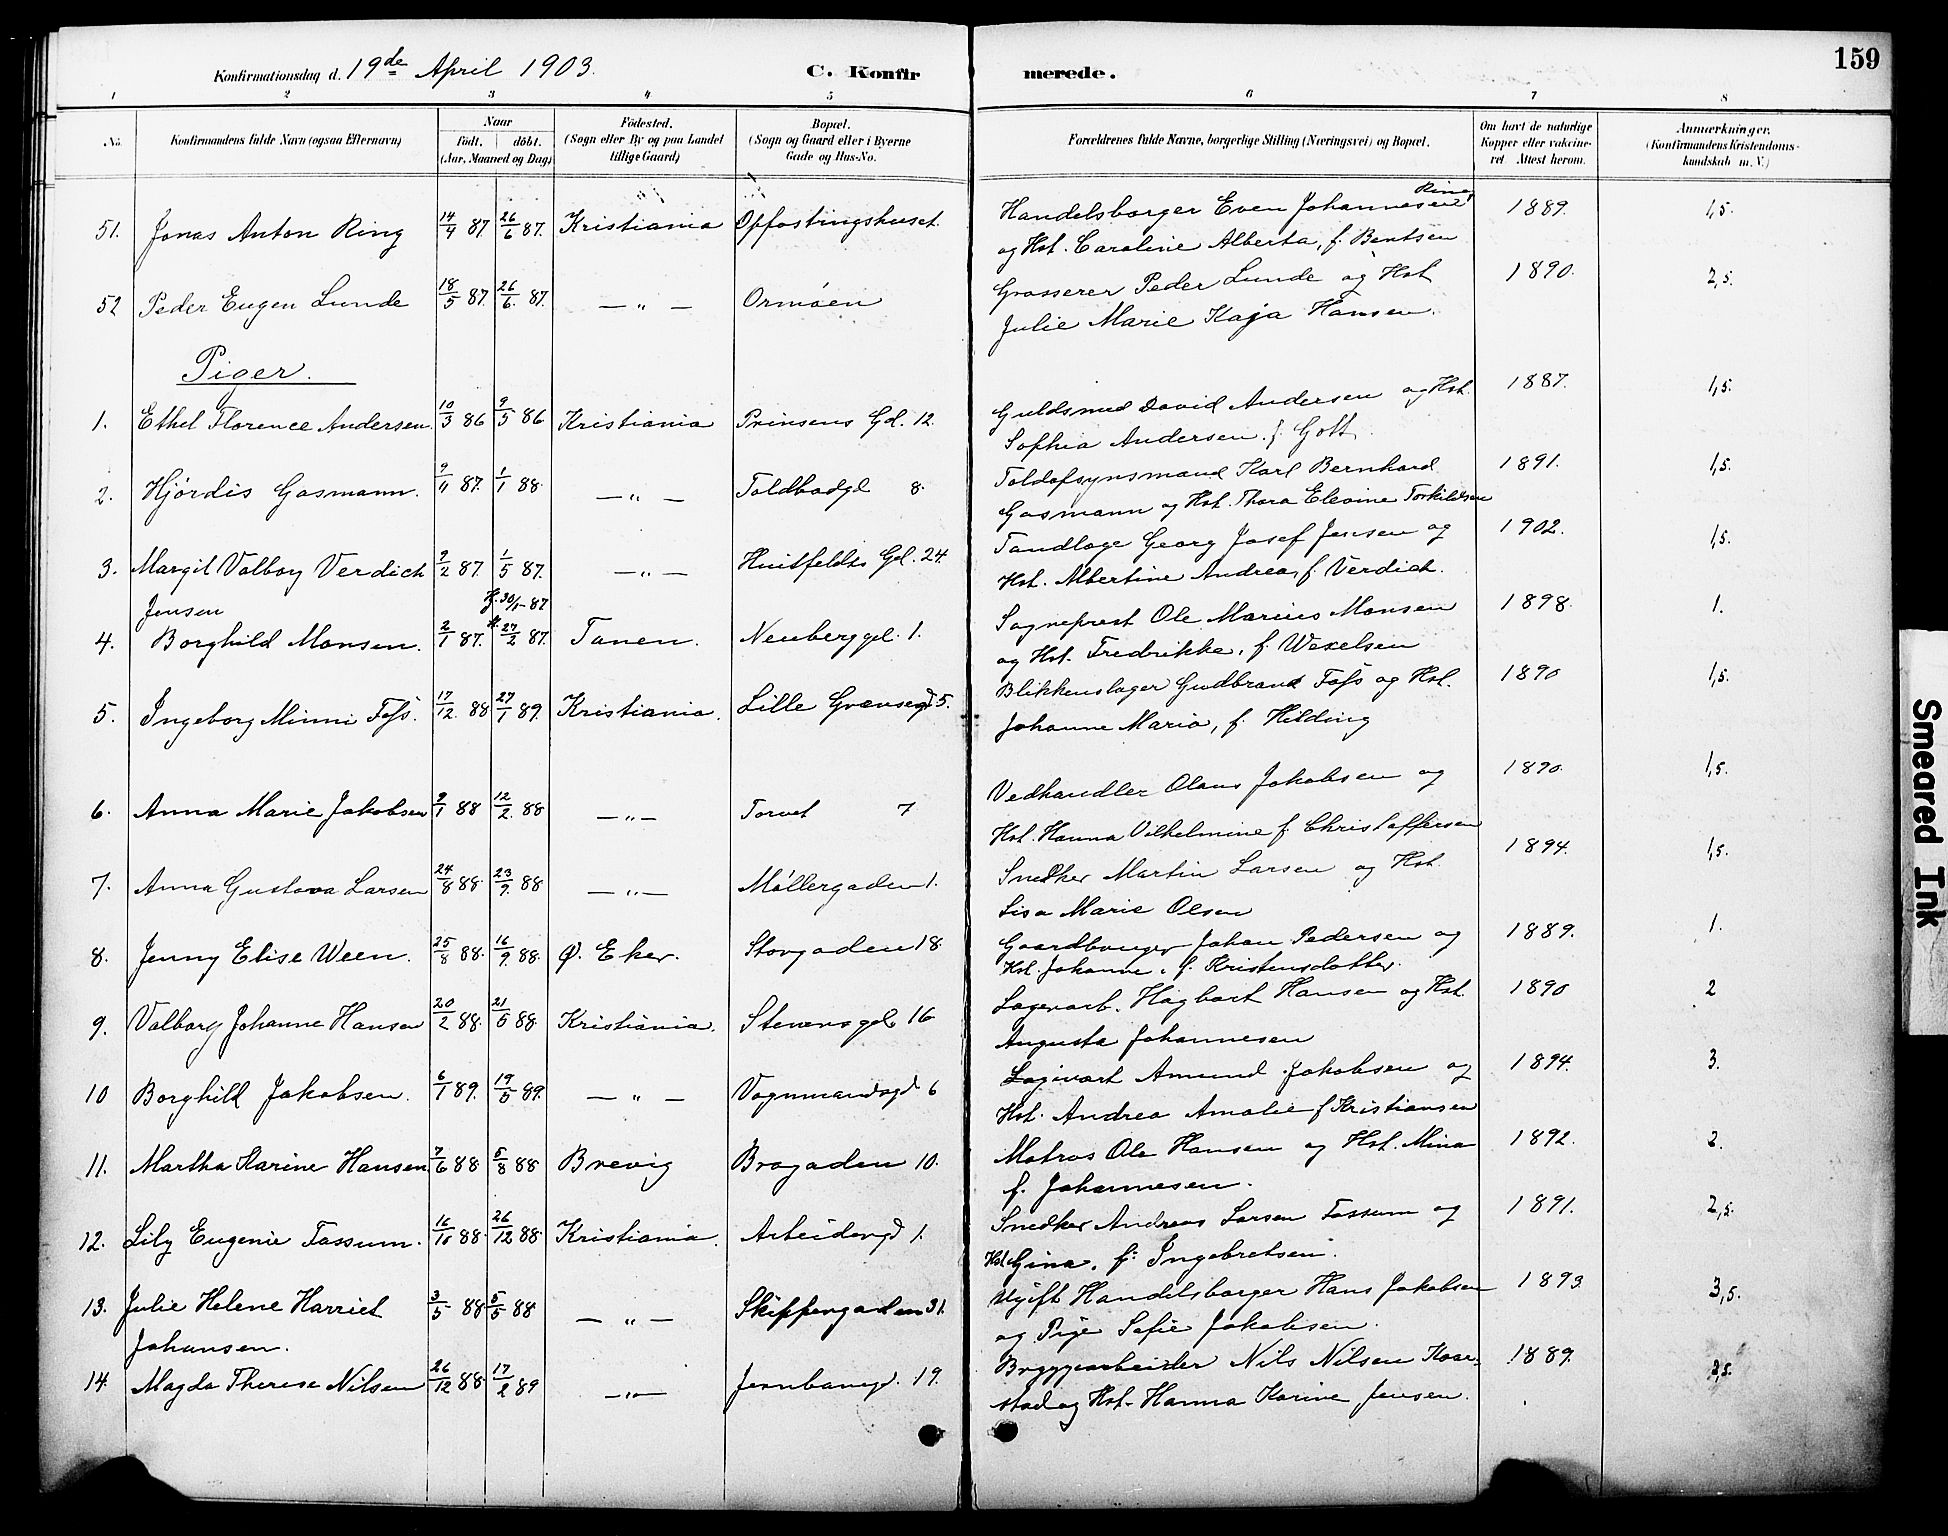 Konfirmationsdag d. 19de April 1903. C. Konfirmerede. 159
1 2 3 4 5 6 7 8
No. Konfirmandens fulde Navn (ogsaa Efternavn) Naar født. døbt. (Aar, Maaned og Dag) Fødested. (Sogn eller By og paa Landet tillige Gaard) Bopæl. (Sogn og Gaard eller i Byerne Gade og Hus-No. Forældrenes fulde Navne, borgerlige Stilling (Næringsvei) og Bopæl. Om havt de naturlige Kopper eller vakcineret. Attest herom. Anmærkninger. (Konfirmandens Kristendomskundskab m. V.)
51. Jonas Anton Ring 14/4 87 26/6 87. Kristiania Opfostringshuset. Handelsborger Even Johannesen Ring 1889. 1,5.
og Hst. Caroline Alberta, f. Bentsen
52 Peder Eugen Lunde 18/5 87. 26/6. 87. — „ — Ormøen Grosserer Peder Lunde og Hst 1890. 2,5.
Julie Marie Kaja Hansen.
Piger.
1. Ethel Florence Andersen. 10/3 86 9/5 86 Kristiania Prinsens Gd. 12. Guldsmed David Andersen og Hst. 1887. 1,5.
Sophia Andersen. f. Gott.
2. Hjördis Gasmann. 9/11 87. 1/1 88. — „ — Toldbodgd 8. Toldopsynsmand Karl Bernhard 1891. 1,5.
Gasmann og Hst. Thora Elevine Torkildsen
3. Margit Valborg Verdich 9/2 87. 1/5 87. — „ — Huitfeldts Gd. 24. Tandlæge Georg Josef Jensen og 1902. 1,5.
Jensen Hst. Albertine Andrea, f. Verdich.
4. Borghild Monsen. 2/1 87. 27/2 87. Tanen. Neuberggd. 1. Sogneprest Ole Marius Monsen 1898. 1.
og Hst. Fredrikke, f. Wexelsen
5. Ingeborg Minni Fofs. 17/12. 88 27/1 89. Kristiania. Lille Grænsegd 5. Blikkenslager Gudbrand Fofs og Hst. 1890 1,5.
Johanne Maria, f. Hilding
6. Anna Marie Jakobsen 9/1 88 12/2. 88 — „ — Torvet 7 Vedhandler Olaus Jakobsen og 1890. 1,5.
Hst. Hanna Vilhelmine f. Christoffersen
7. Anna Gustava Larsen 24/8 88. 23/9. 88 — „ — Møllergaden 1. Snedker Martin Larsen og Hst. 1894. 1,5.
Lisa Marie Olsen
8. Jenny Elise Ween. 25/8 88. 16/9. 88. Ø. Eker. Storgaden 18. Gaardbruger Johan Pedersen og 1889. 1.
Hst. Johanne, f. Kristensdatter.
9. Valborg Johanne Hansen 20/2 88. 21/5 88. Kristiania. Stenersgd 16 Lagerarb. Hagbart Hansen og Hst. 1890 2
Augusta Johannesen
10 Borghild Jakobsen. 6/1 89. 19/5 89. — „ — Vognmandsgd 6 Amund Jakobsen og 1894. 3.
Hst. Andrea Amalie f Kristiansen
11. Martha Karine Hansen. 7/6 88. 5/8 88 Brevig Brogaden 10. Matros Ole Hansen og Hst. Mina 1892. 2.
f. Johannesen.
12. Lily Eugenie Fossum. 16/10 88. 26/12 88. Kristiania. Arbeidergd 1. Snedker Andreas Larsen Fossum og 1891. 2,5.
Hst. Gina, f. Ingebretsen.
13. Julie Helene Harriet 3/5 88 5/5 88 — „ — Skippergaden 31. Ugift Handelsborger Hans Jakobsen 1893 3,5.
Johansen. og Pige Sofie Jakobsen.
14. Magda Therese Nilsen 26/12 88 17/2 89 — „ — Jernbanegd. 19. Bryggearbeider Nils Nilsen 1889.
stad og Hst. Hanna Karine Jensen.
Smeared Ink